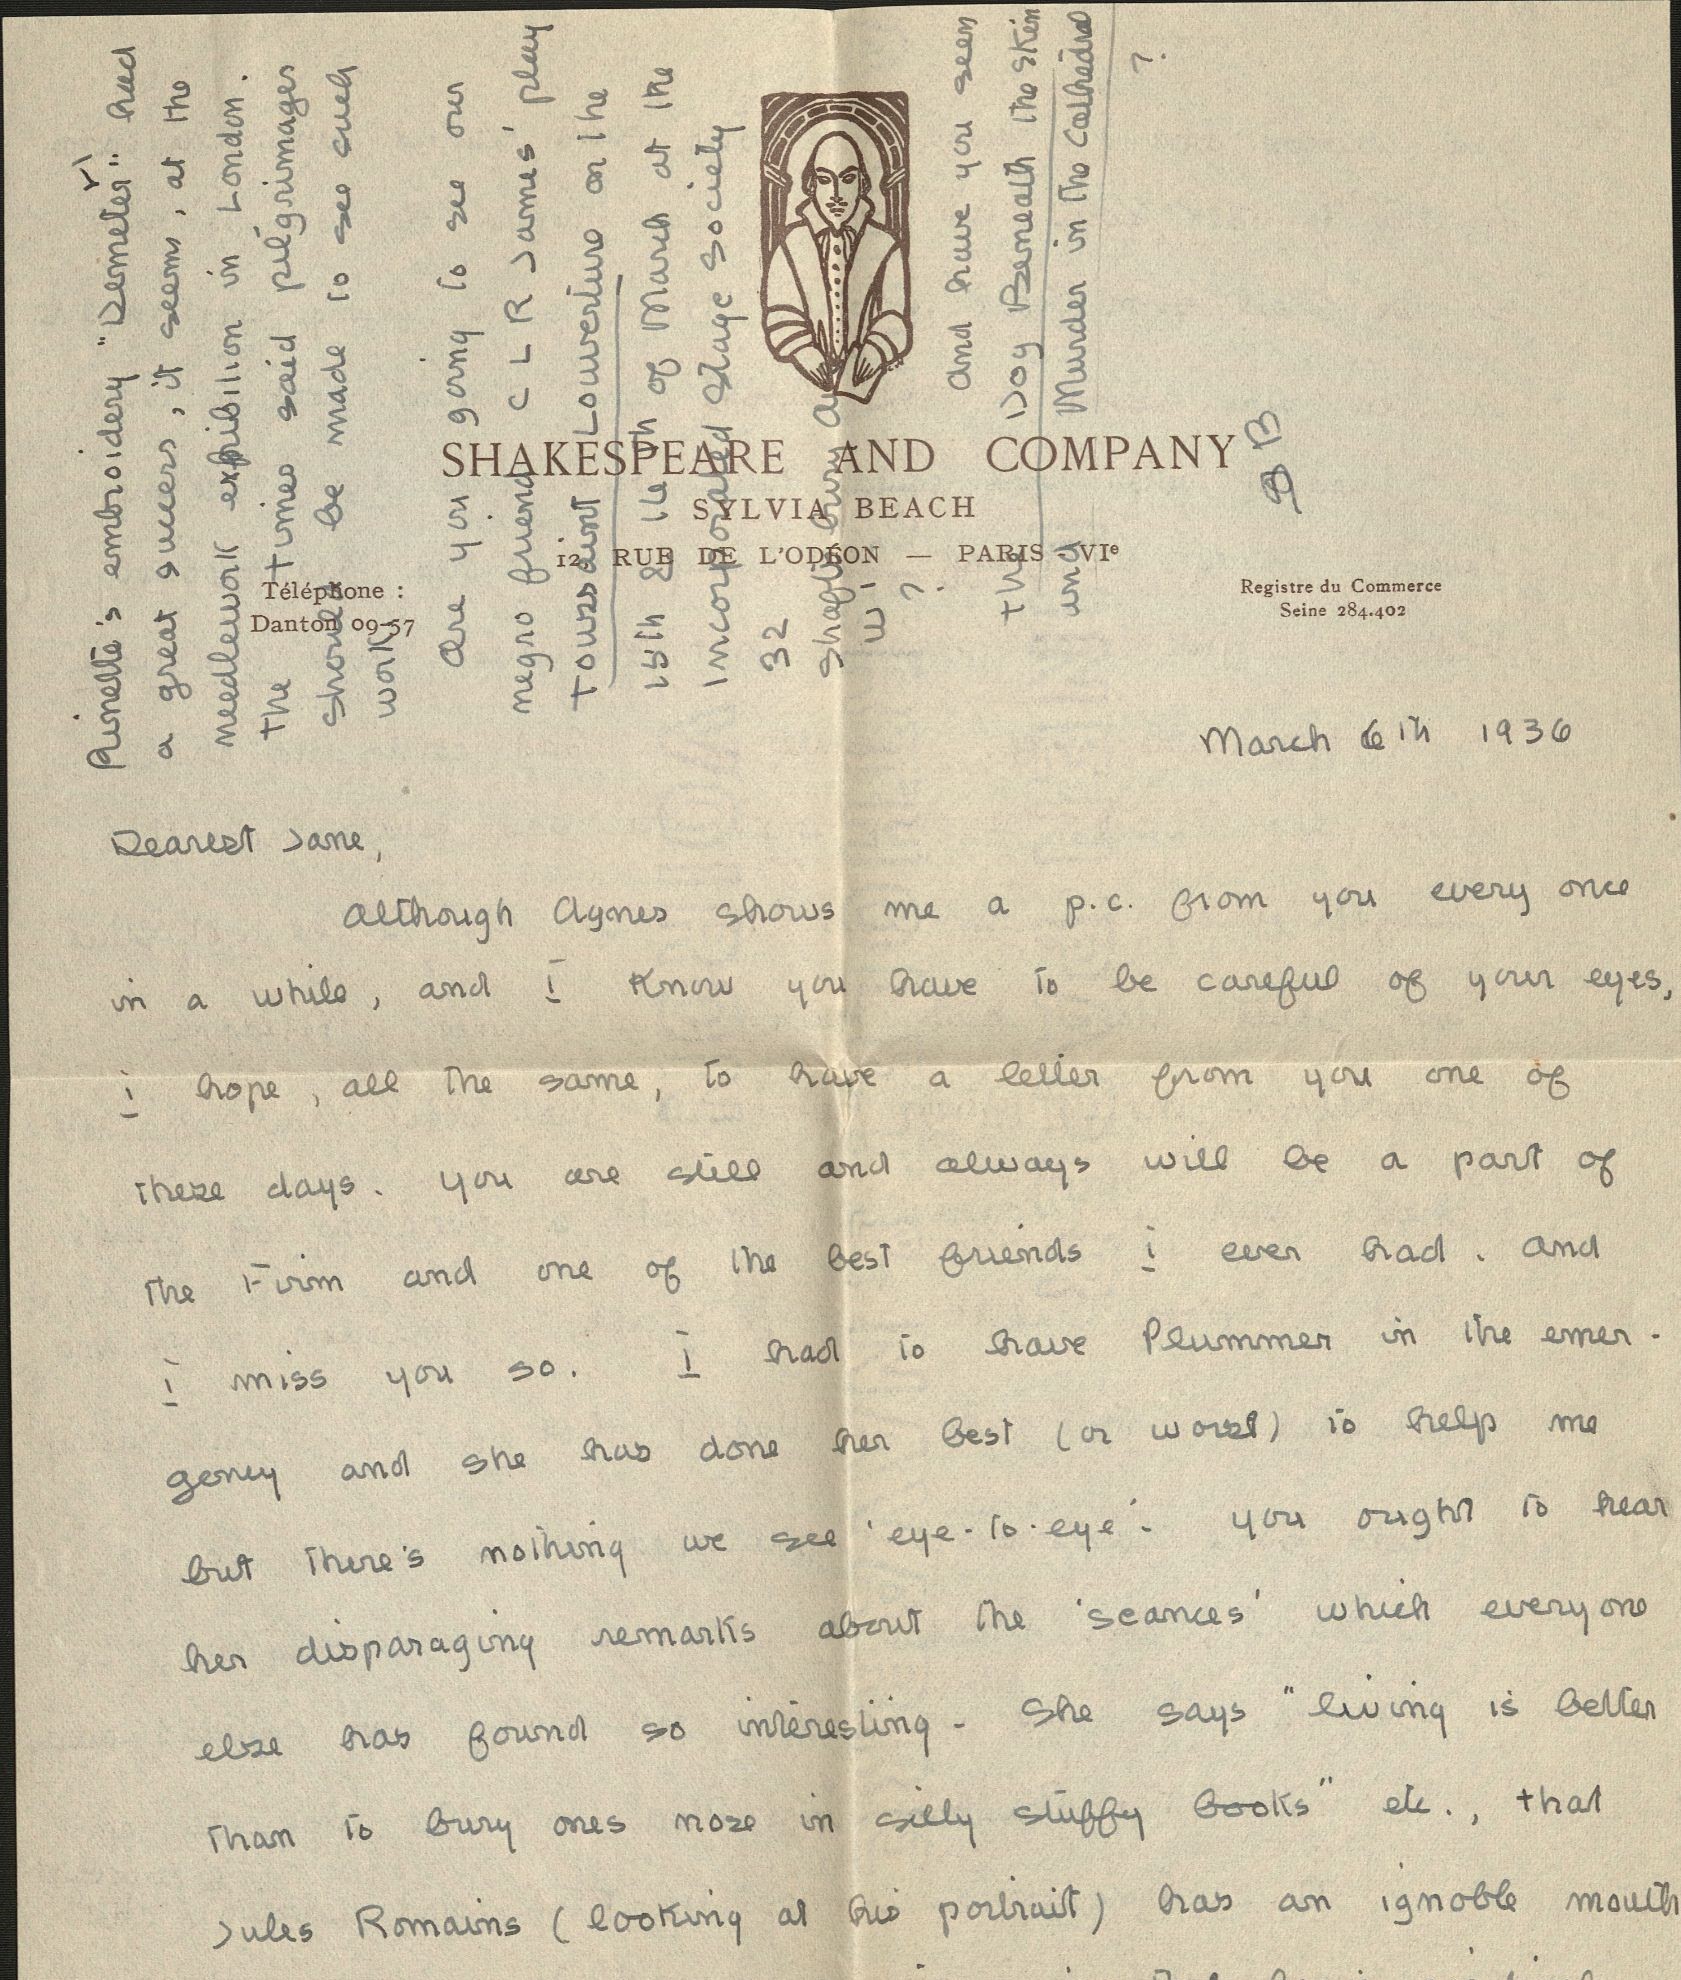 SHAKESPEARE AND COMPANY
SYLVIA BEACH
12, RUE DE L'ODÉON — PARIS - VIe
Téléphone :
Danton 09-57
Registre du Commerce
Seine 284.402
March 6th 1936
Dearest Jane,
Although Agnes shows me a p.c. from you every once
in a while, and I know you have to be careful of your eyes,
I hope, all the same, to have a letter from you one of
these days. You are still and always will be a part of
the Firm and one of the best friends I ever had. And
I miss you so. I had to have Plummer in the emer-
gency and she has done her best (or worst) to help me
but there's nothing we see 'eye-to-eye'. You ought to hear
her disparaging remarks about the 'seances' which everyone
else has found so interesting. She says "living is better
than to bury ones nose in silly stuffy books" etc., that
Jules Romains (looking at his portrait) has an ignoble mouth
Rinette's embroidery "Demeter" had
a great success, it seems, at the
needlework exhibition in London.
The Times said pilgrimages
should be made to see such
work.
Are you going to see our
negro friend C L R James' play
Toussaint Louverture on the
15th & 16th of March at the
Incorporated Stage Society
32
Shaftesbury A
W 1
?
And have you seen
The Dog Beneath the Skin
and Murder in the Cathedral
?
SB